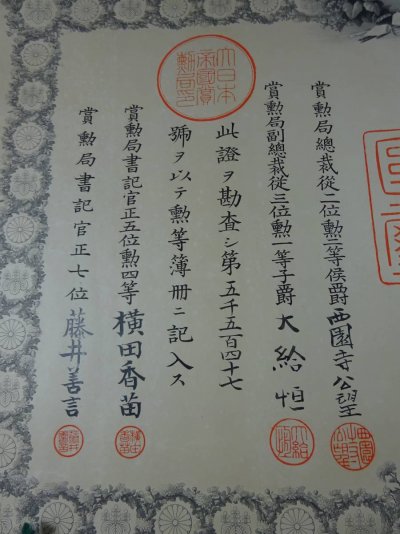 賞勲局總裁從二位勲二等侯爵西園寺公望
賞勲局副總裁從三位勲一等子爵大給恒
此證ヲ勘査シ第五千五百四十七
號ヲ以テ勲等簿册ニ記入ス
賞勲局書記官正五位勲四等横田香苗
賞勲局書記官正七位藤井善言
大日本
帝國賞
勲局印